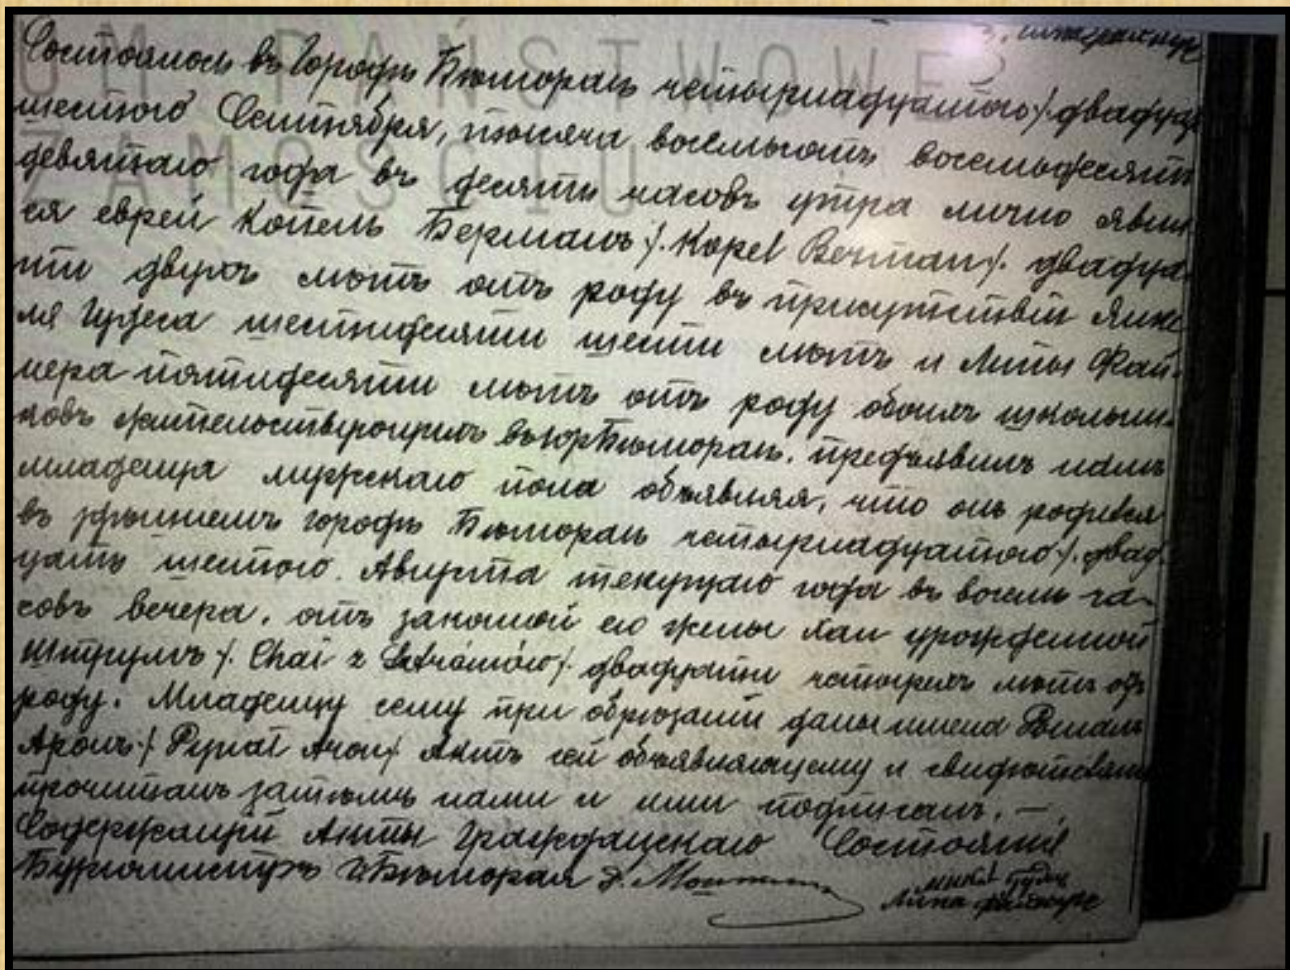 Состоялось въ Городѣ Бѣлгораѣ четырнадцатого /. двадца
шестого Сентября, тысяча восемьсотъ восемьдесятъ
девятаго года въ десять часовъ утра лично явил
ся еврей Копель Берманъ /. Kopel Berman /. двадца
ти двухъ лѣтъ отъ роду въ присутствіи
шестидесяти шести лѣтъ и Липы Фай-
нера пятидесяти лѣтъ отъ роду обоихъ школьни-
ковъ жительствующихъ въ гор Бѣлгораѣ. предъявилъ намъ
младенца мужескаго пола объявляя, что онъ родился
въ здѣшнемъ городѣ Бѣлгораѣ четырнадцатого /. двад
цать шестого. Августа текущаго года въ восемь ча-
совъ вечера, отъ законной его жены Хаи урожденной
/. Chai z /. двадцати четырехъ лѣтъ отъ
роду. Младенцу сему при обрѣзаніи даны имена
Аронъ /. Aron /. Актъ сей объявляющему и свидѣтелямъ
прочитанъ затѣмъ нами и ими подписанъ. —
Содержащій Акты Гражданскаго Состоянія
Бургомистръ г. Бѣлгорая
Липа Файнеръ
PAŃSTWOWE
ZAMOŚCIU